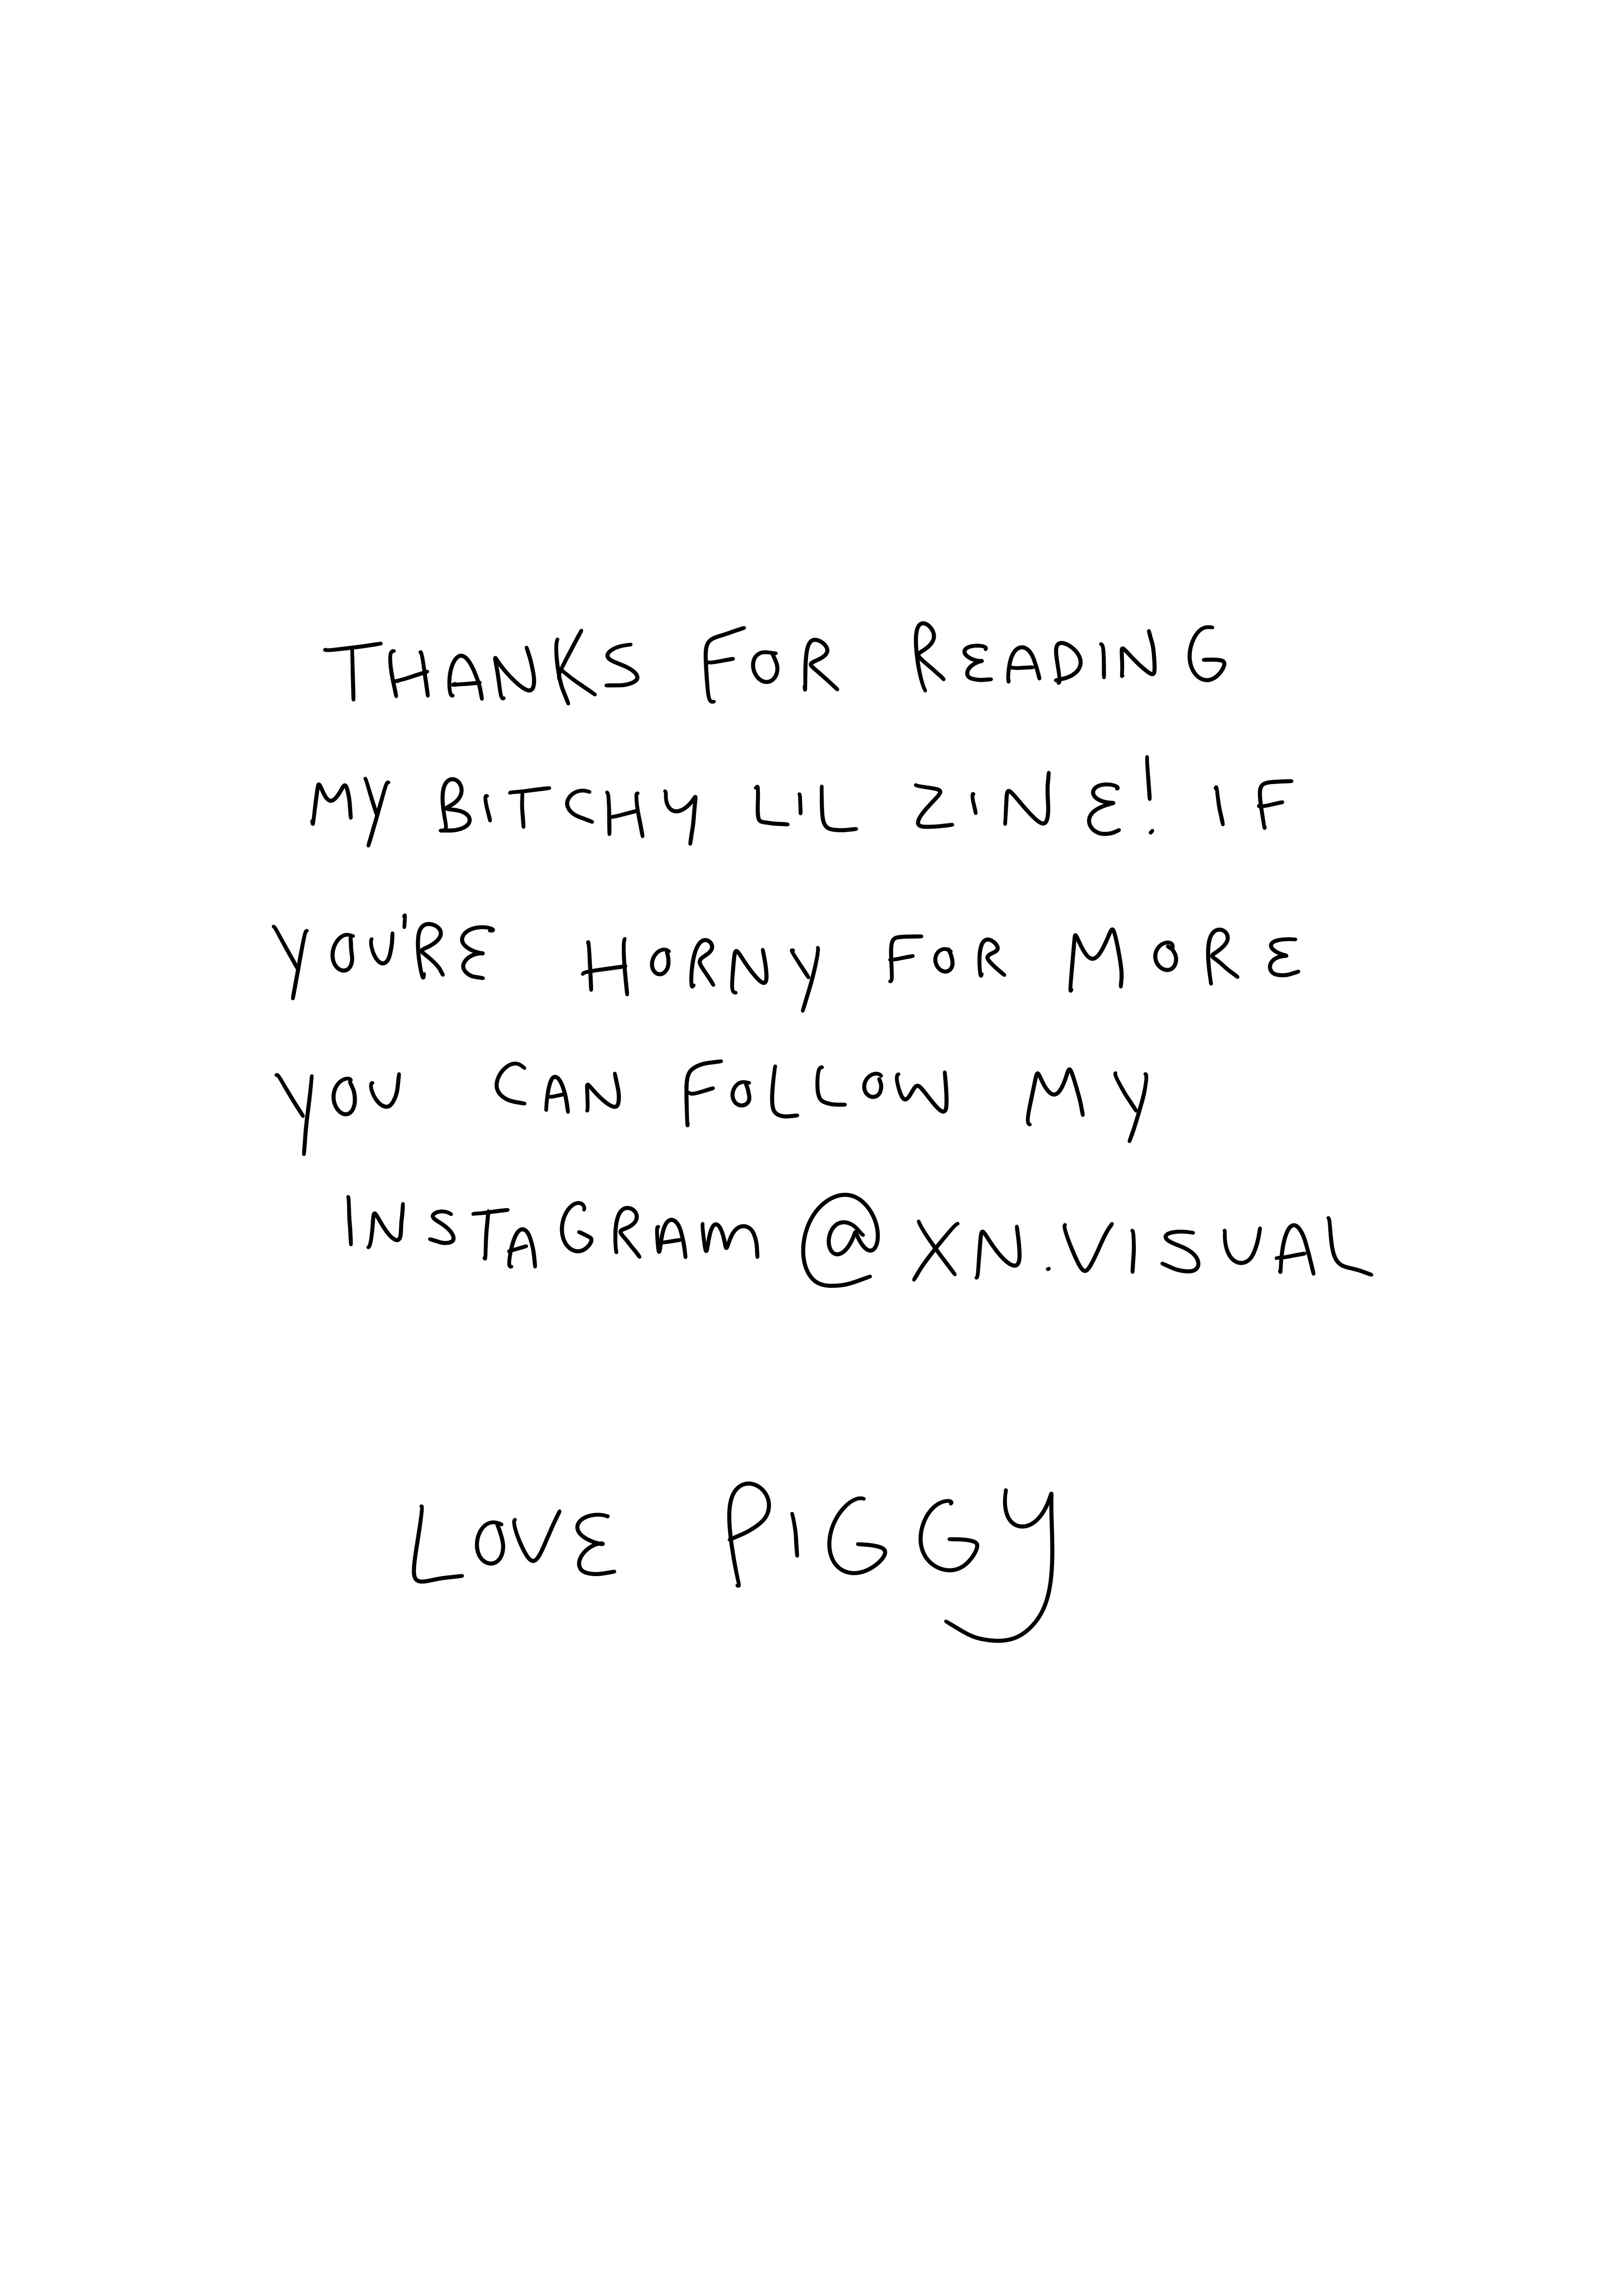 THANKS FOR READING
MY BITCHY LIL ZINE! IF
YOU'RE HORNY FOR MORE
YOU CAN FOLLOW MY
INSTAGRAM @XN.VISUAL
LOVE PIGGY